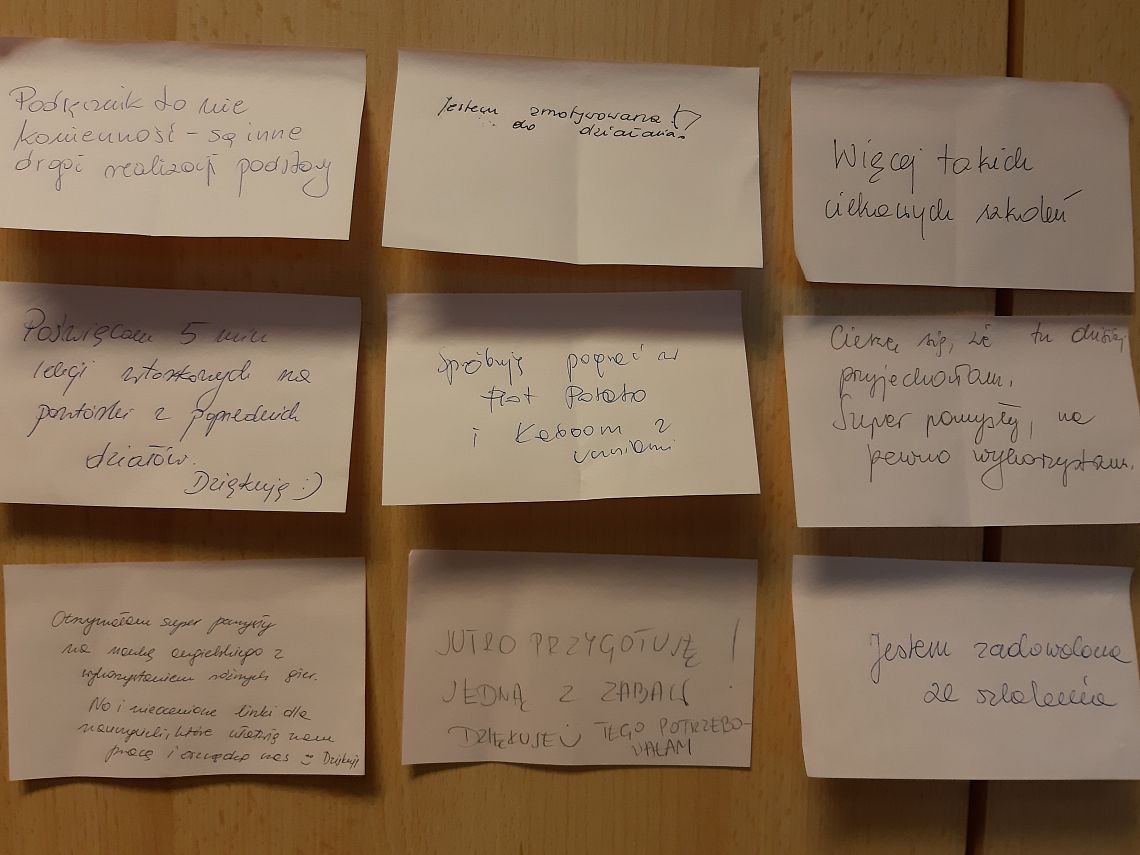 Podręcznik to nie
konieczność - są inne
drogi realizacji podstawy
Jestem zmotywowana
do działania.
Więcej takich
ciekawych szkoleń
Poświęcam 5 min
lekcji wtorkowych na
powtórki z poprzednich
działów.
Dziękuję :)
Spróbuję pograć w
Hot Potato
i Kaboom z
uczniami
Cieszę się, że tu dzisiaj
przyjechałam.
Super pomysły, na
pewno wykorzystam.
Otrzymałam super pomysły
na naukę angielskiego z
wykorzystaniem różnych gier.
No i nieocenione linki dla
nauczycieli, które ułatwią nam
pracę i oszczędzą nas Dziękuję
JUTRO PRZYGOTUJĘ !
JEDNĄ Z ZABAW
TEGO POTRZEBO-
WAŁAM
Jestem zadowolona
ze szkolenia